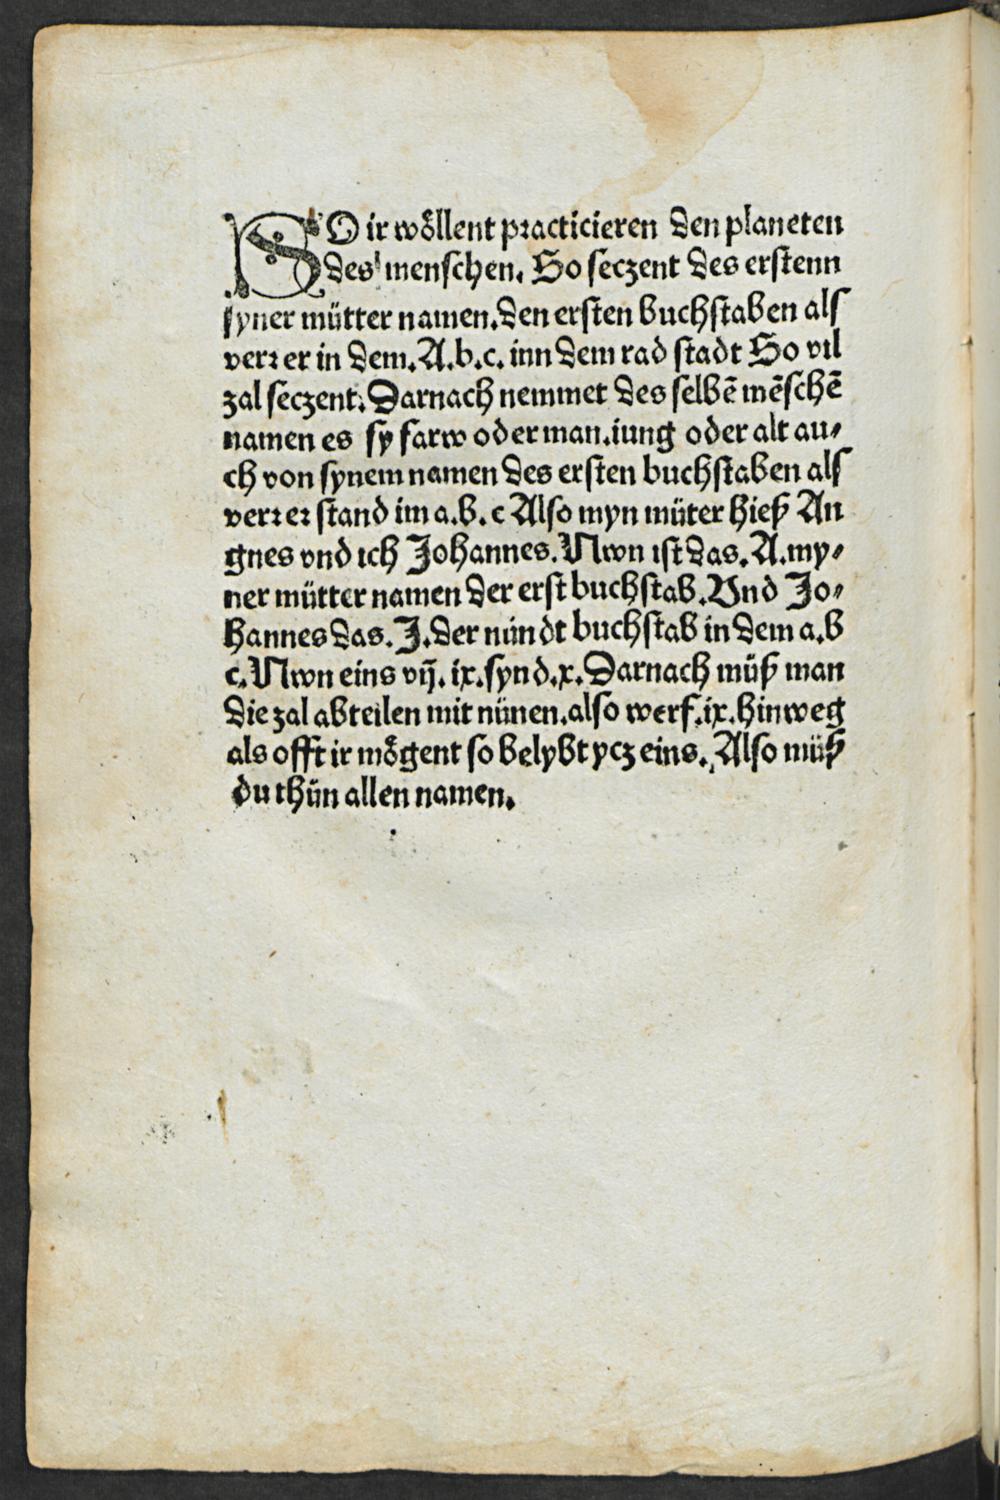 SO ir wöllent practicieren den planeten
des menschen. So seczent des erstenn
syner mütter namen.den ersten buchstaben als
verr er in dem.A.b.c. inn dem rad stadt So vil
zal seczent.Darnach nemmet des selbē mēschē
namen es sy farw oder man.iung oder alt au⸗
ch von synem namen des ersten buchstaben als
verr er stand im a.b.c Also myn müter hieß An
gnes vnd ich Johannes.Nwn ist das.A.my⸗
ner mütter namen der erst buchstab.Vnd Jo⸗
hannes das.J.der nündt buchstab in dem a.b
c.Nwn eins vij.ix.synd.x.Darnach müß man
die zal abteilen mit nünen.also werf.ix.hinweg
als offt ir mögent so belybt ycz eins.Also müß
du thün allen namen.